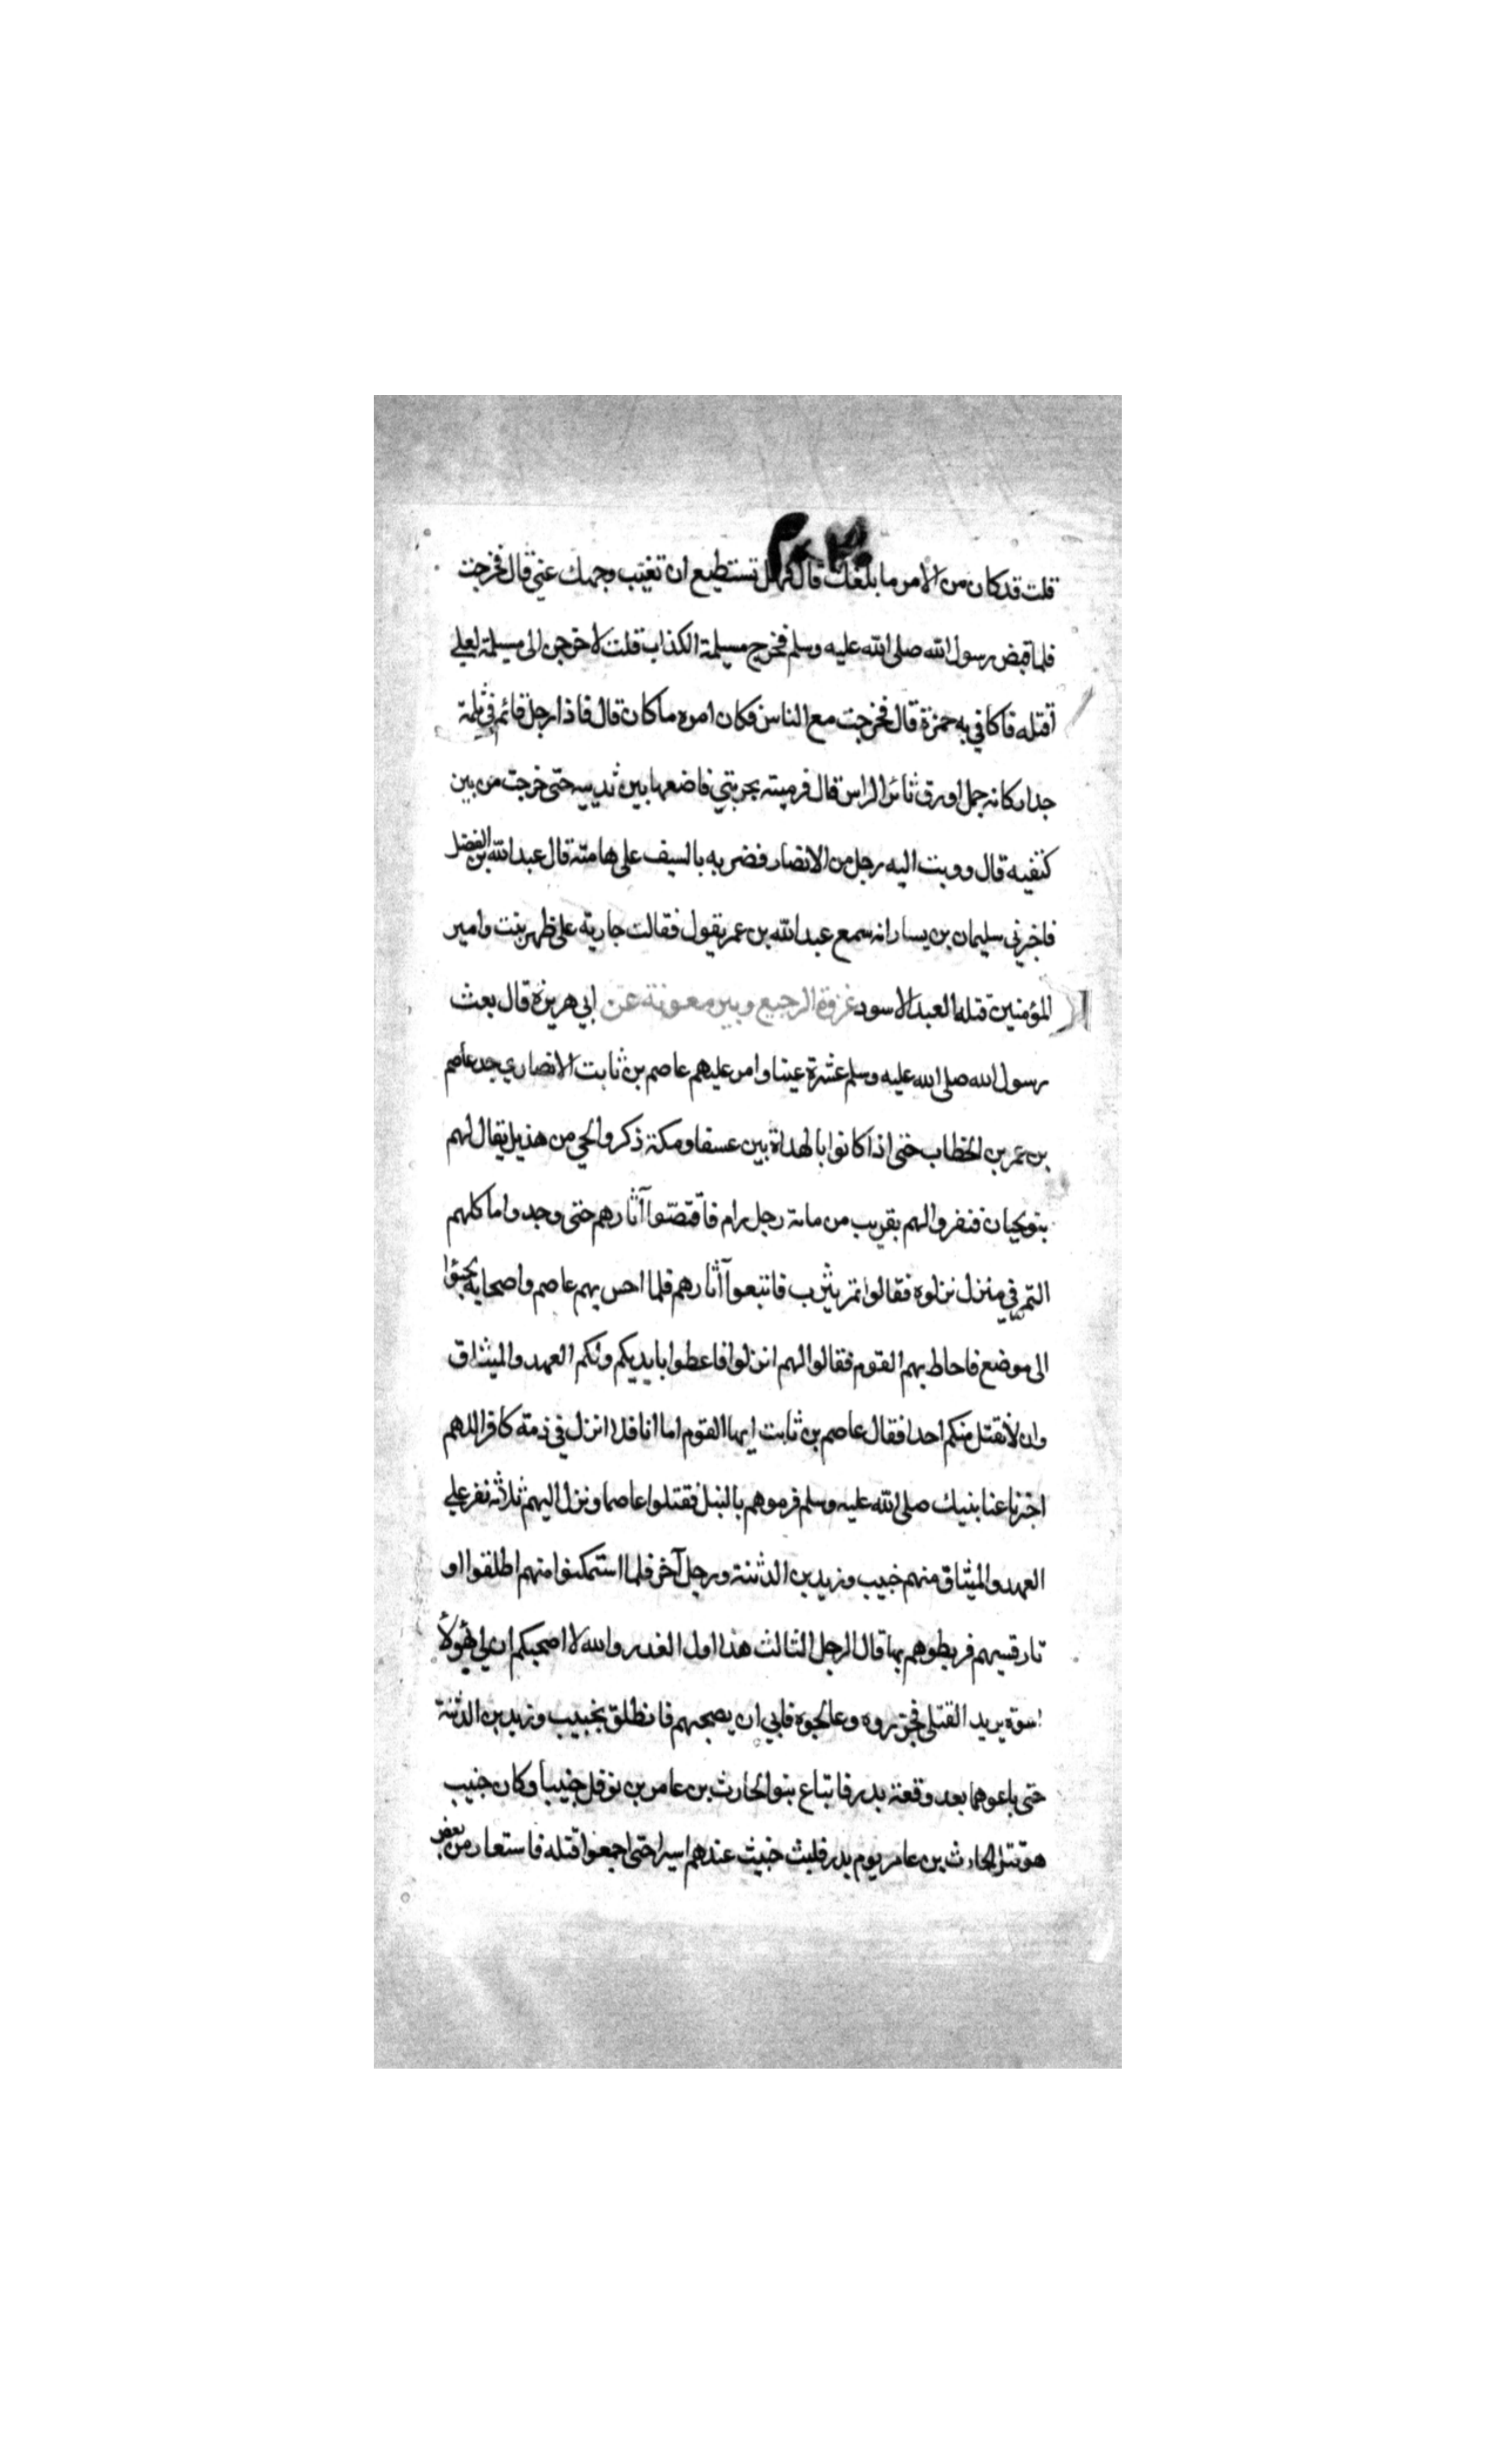 قلت قد كان من الامر ما بلغك قال فهل تستطيع ان تغيب وجهك عني قال فخرجت
فلما قبض رسول الله صلى الله عليه وسلم فخرج مسيلمة الكذاب قلت لاخرجن الى مسيلمة لعلي
اقتله فاكافي به حمزة قال فخرجت مع الناس فكان امره ما كان قال فاذا رجل قائم في ثلمة
جدار كانه جمل اورق ثائر الراس قال فرميته بحربتي فاضعها بين ثدييه حتى خرجت من بين
كتفيه قال ووبت اليه رجل من الانصار فضربه بالسيف على هامته قال عبد الله بن الفضل
فاخبرني سليمان بن يسار انه سمع عبد الله بن عمر يقول فقالت جارية على ظهر بيت وامير
المؤمنين قتله العبد الاسود غزوة الرجيع وبير معونة عن ابي هريرة قال بعث
رسول الله صلى الله عليه وسلم عشرة عينا وامر عليهم عاصم بن ثابت الانصاري جد عاصم
بن عمر بن الخطاب حتى اذا كانوا بالهداة بين عسفا ومكة ذكروا لحي من هذيل يقال لهم
بنو لحيان فنفروا لهم بقريب من مائة رجل رام فاقتصوا آثارهم حتى وجدوا ماكلهم
التمر في منزل نزلوه فقالوا تمر يثرب فاتبعوا آثارهم فلما احس بهم عاصم واصحابه لجئوا
الى موضع فاحاط بهم القوم فقالوا لهم انزلوا فاعطوا بايديكم ولكم العهد والميثاق
وان لا نقتل منكم احدا فقال عاصم بن ثابت ايها القوم اما انا فلا انزل في ذمة كافر اللهم
اخبر عنا بنيك صلى الله عليه وسلم فرموهم بالنبل فقتلوا عاصما ونزل اليهم ثلاثة نفر على
العهد والميثاق منهم خبيب وزيد بن الدثنة ورجل آخر فلما استمكنوا منهم اطلقوا او
تار قسيهم فربطوهم بها قال الرجل الثالث هذا اول الغدر والله لا اصحبكم ان لي بهؤلاء
اسوة يريد القتلى فجرروه وعالجوه فابي ان يصحبهم فانطلق بخبيب وزيد بن الدثنة
حتى باعوهما بعد وقعة بدر فابتاع بنو الحارث بن عامر بن نوفل خبيبا وكان خبيب
هو قتل الحارث بن عامر يوم بدر فلبث خبيب عندهم اسيرا حتى اجمعوا قتله فاستعار من بعض